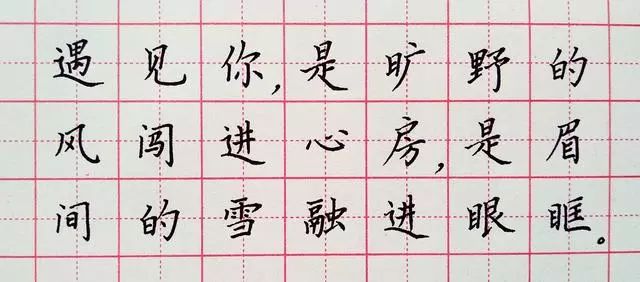 遇见你,是旷野的
风闯进心房,是眉
间的雪融进眼眶。